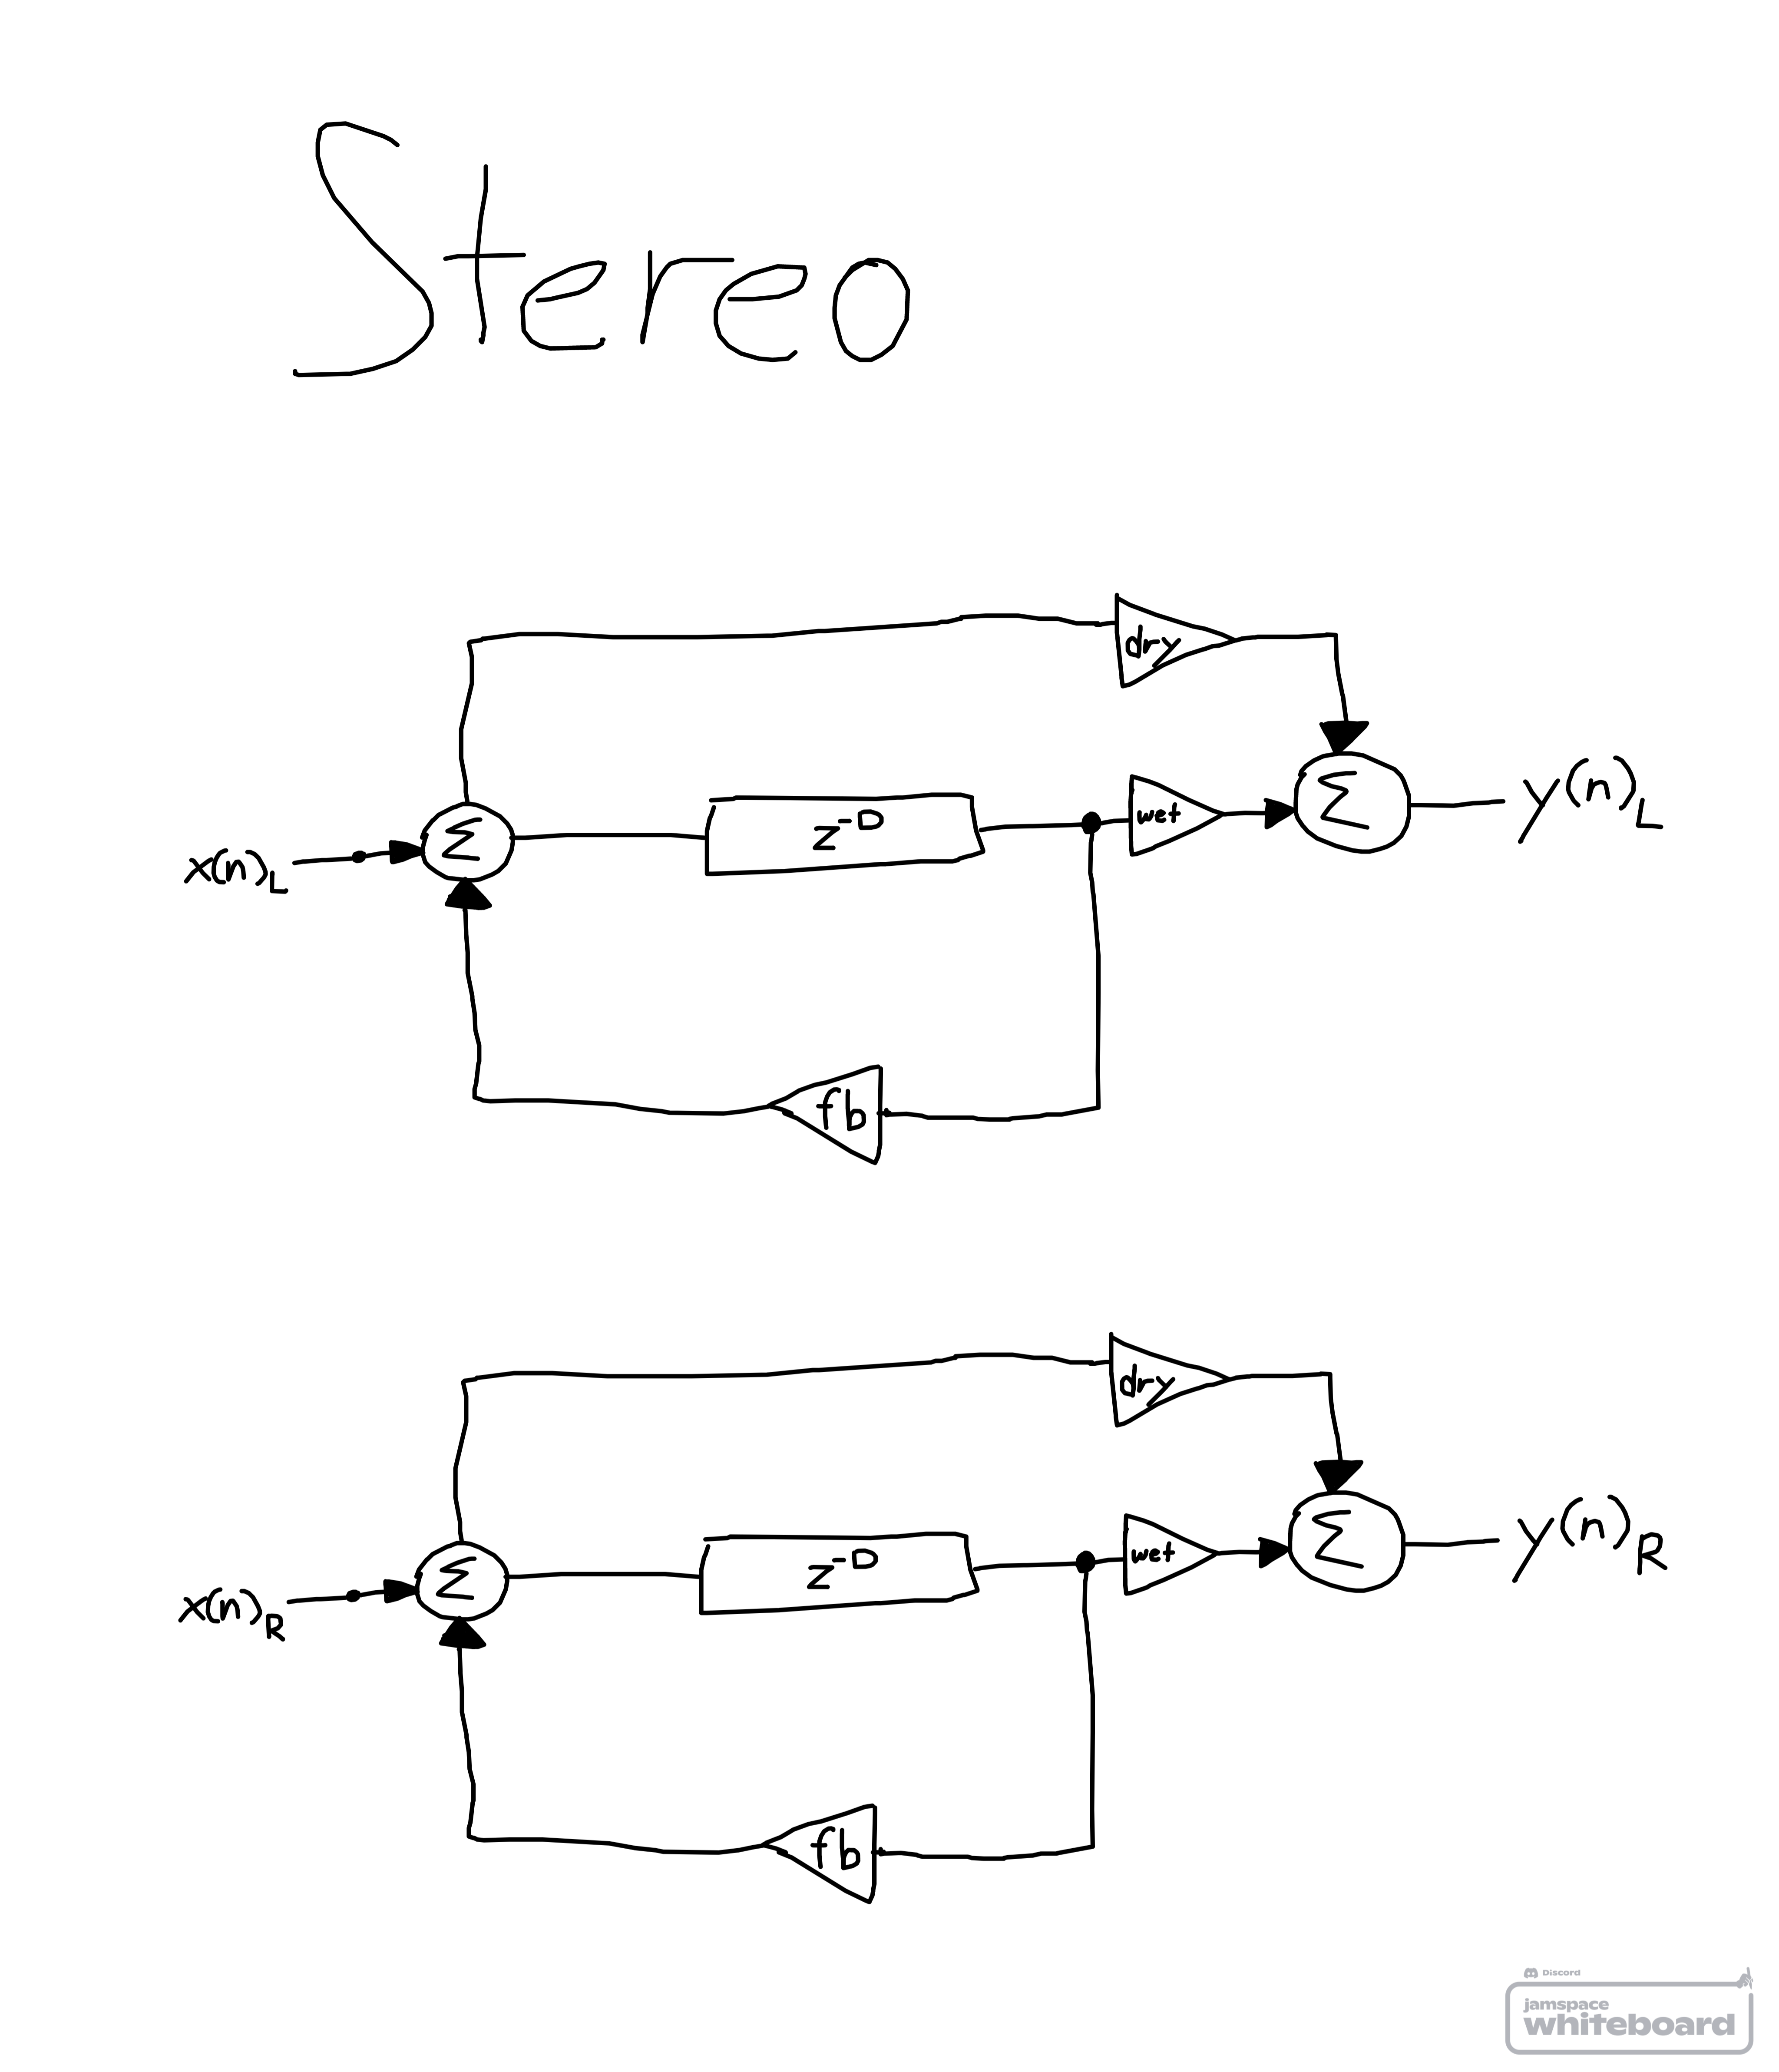 Stereo
dry
x(n)L Σ z^-D wet Σ y(n)L
fb
dry
x(n)R Σ z^-D wet Σ y(n)R
fb
Discord
jamspace
whiteboard